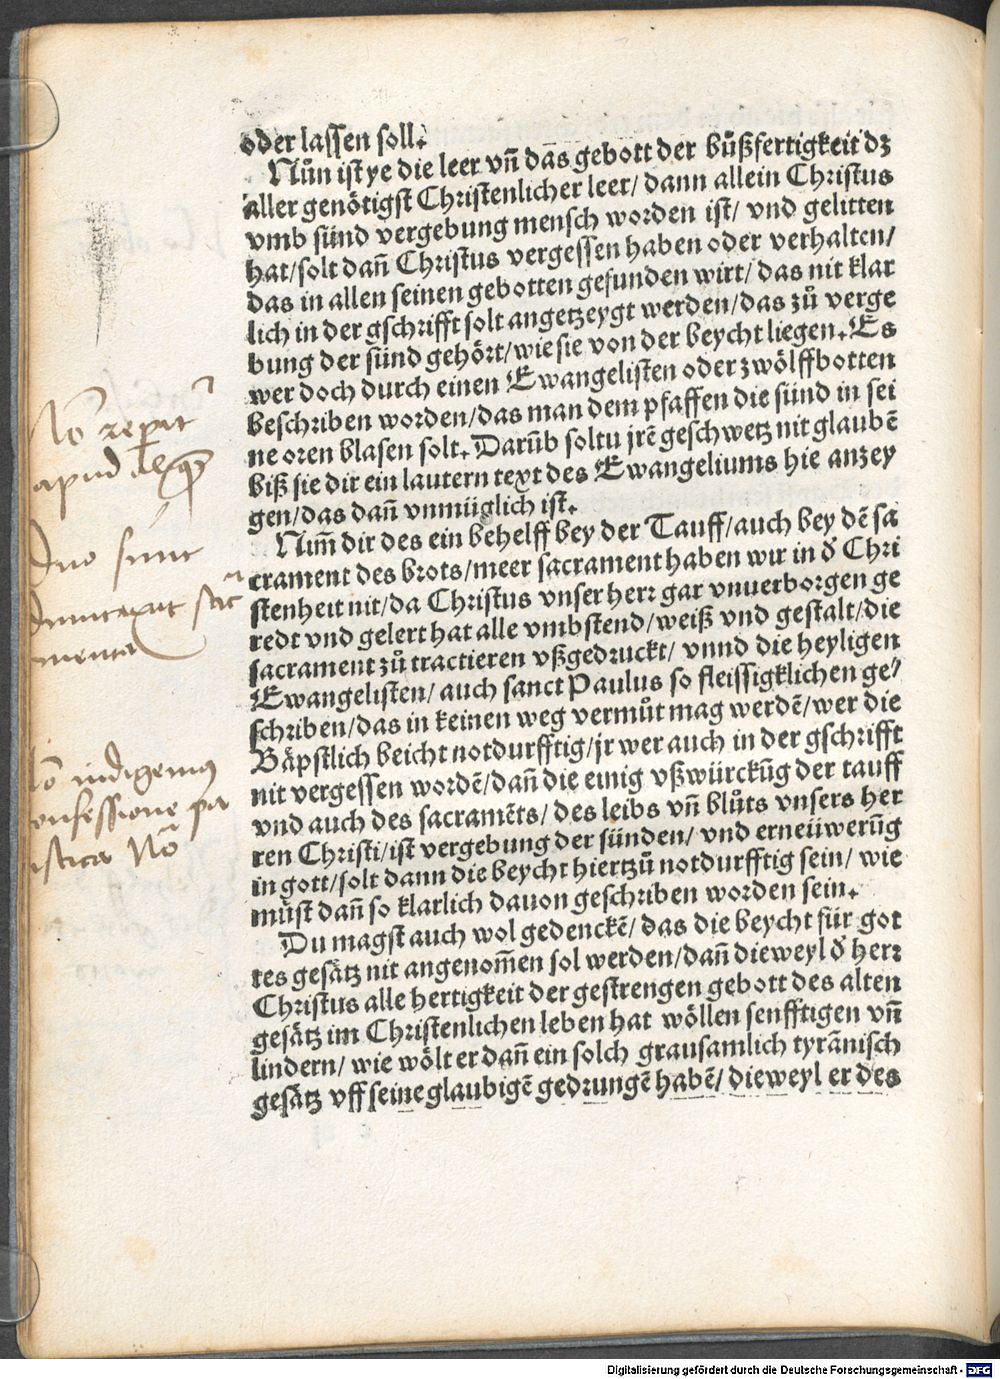 oder lassen soll.
Nůn ist ye die leer vn̄ das gebott der bůßfertigkeit dz
aller genötigst Christenlicher leer/ dann allein Christus
vmb sünd vergebung mensch worden ist/ vnd gelitten
hat/solt dañ Christus vergessen haben oder verhalten/
das in allen seinen gebotten gefunden wirt/das nit klar
lich in der gschrifft solt angetzeygt werden/das zů verge
bung der sünd gehört/wie sie von der beycht liegen. Es
wer doch durch einen Ewangelisten oder zwölffbotten
beschriben worden/das man dem pfaffen die sünd in sei
ne oren blasen solt. Darūb soltu jrē geschwetz nit glaubē
biß sie dir ein lautern text des Ewangeliums hie anzey
gen/das dañ vnmüglich ist.
Nim̄ dir des ein behelff bey der Tauff/auch bey dē sa
crament des brots/meer sacrament haben wir in d̓ Chri
stenheit nit/da Christus vnser herr gar vnuerborgen ge
redt vnd gelert hat alle vmbstend/weiß vnd gestalt/die
sacrament zů tractieren vßgedruckt/ vnnd die heyligen
Ewangelisten/ auch sanct Paulus so fleissigklichen ge/
schriben/das in keinen weg vermůt mag werdē/wer die
Bäpstlich beicht notdurfftig/jr wer auch in der gschrifft
nit vergessen wordē/dañ die einig vßwürckūg der tauff
vnd auch des sacramēts/ des leibs vn̄ blůts vnsers her
ren Christi/ist vergebung der sünden/ vnd erneüwerūg
in gott/solt dann die beycht hiertzů notdurfftig sein/ wie
můst dañ so klarlich dauon geschriben worden sein.
Du magst auch wol gedenckē/ das die beycht für got
tes gesätz nit angenom̄en sol werden/dañ dieweyl d̓ herr
Christus alle hertigkeit der gestrengen gebott des alten
gesätz im Christenlichen leben hat wöllen senfftigen vn̄
lindern/ wie wölt er dañ ein solch grausamlich tyrānisch
gesätz vff seine glaubigē gedrungē habē/ dieweyl er des
Nō reperit
apud
Duo sunt
duntaxat sac
menta
Nō indigemus
confessione pa
istica Nō
Digitalisierung gefördert durch die Deutsche Forschungsgemeinschaft - DFG